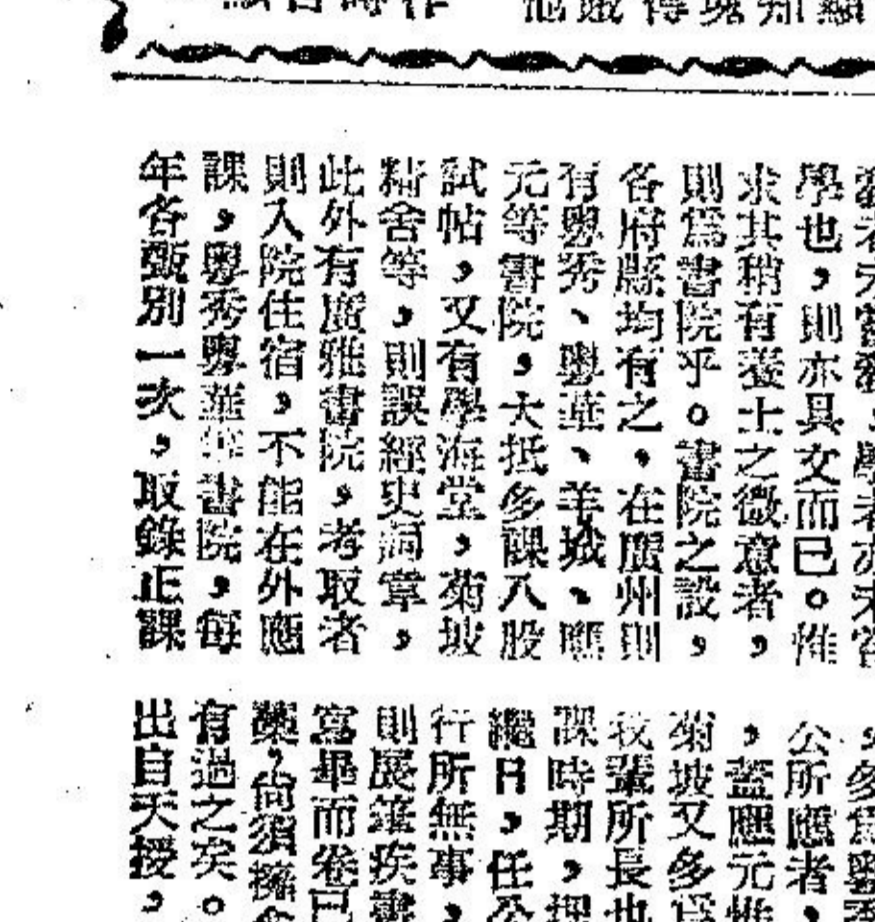 學也，則亦具文而已。惟
求其稍有養士之微意者，
則爲書院乎。書院之設，
各府縣均有之，在廣州則
有粵秀、粵華、羊城、應
元等書院，大抵多課八股
試帖，又有學海堂，菊坡
精舍等，則課經史詞章，
此外有廣雅書院，考取者
則入院住宿，不能在外應
課，粵秀粵華等書院，每
年各甄別一次，取錄正課
公所應者，
，蓋應元惟
菊坡又多
我輩所長也
課時期，
繼日，任公
行所無事，
則展筆疾書
寫畢而卷已
藥，尙須擁
有過之矣。
出自天授，